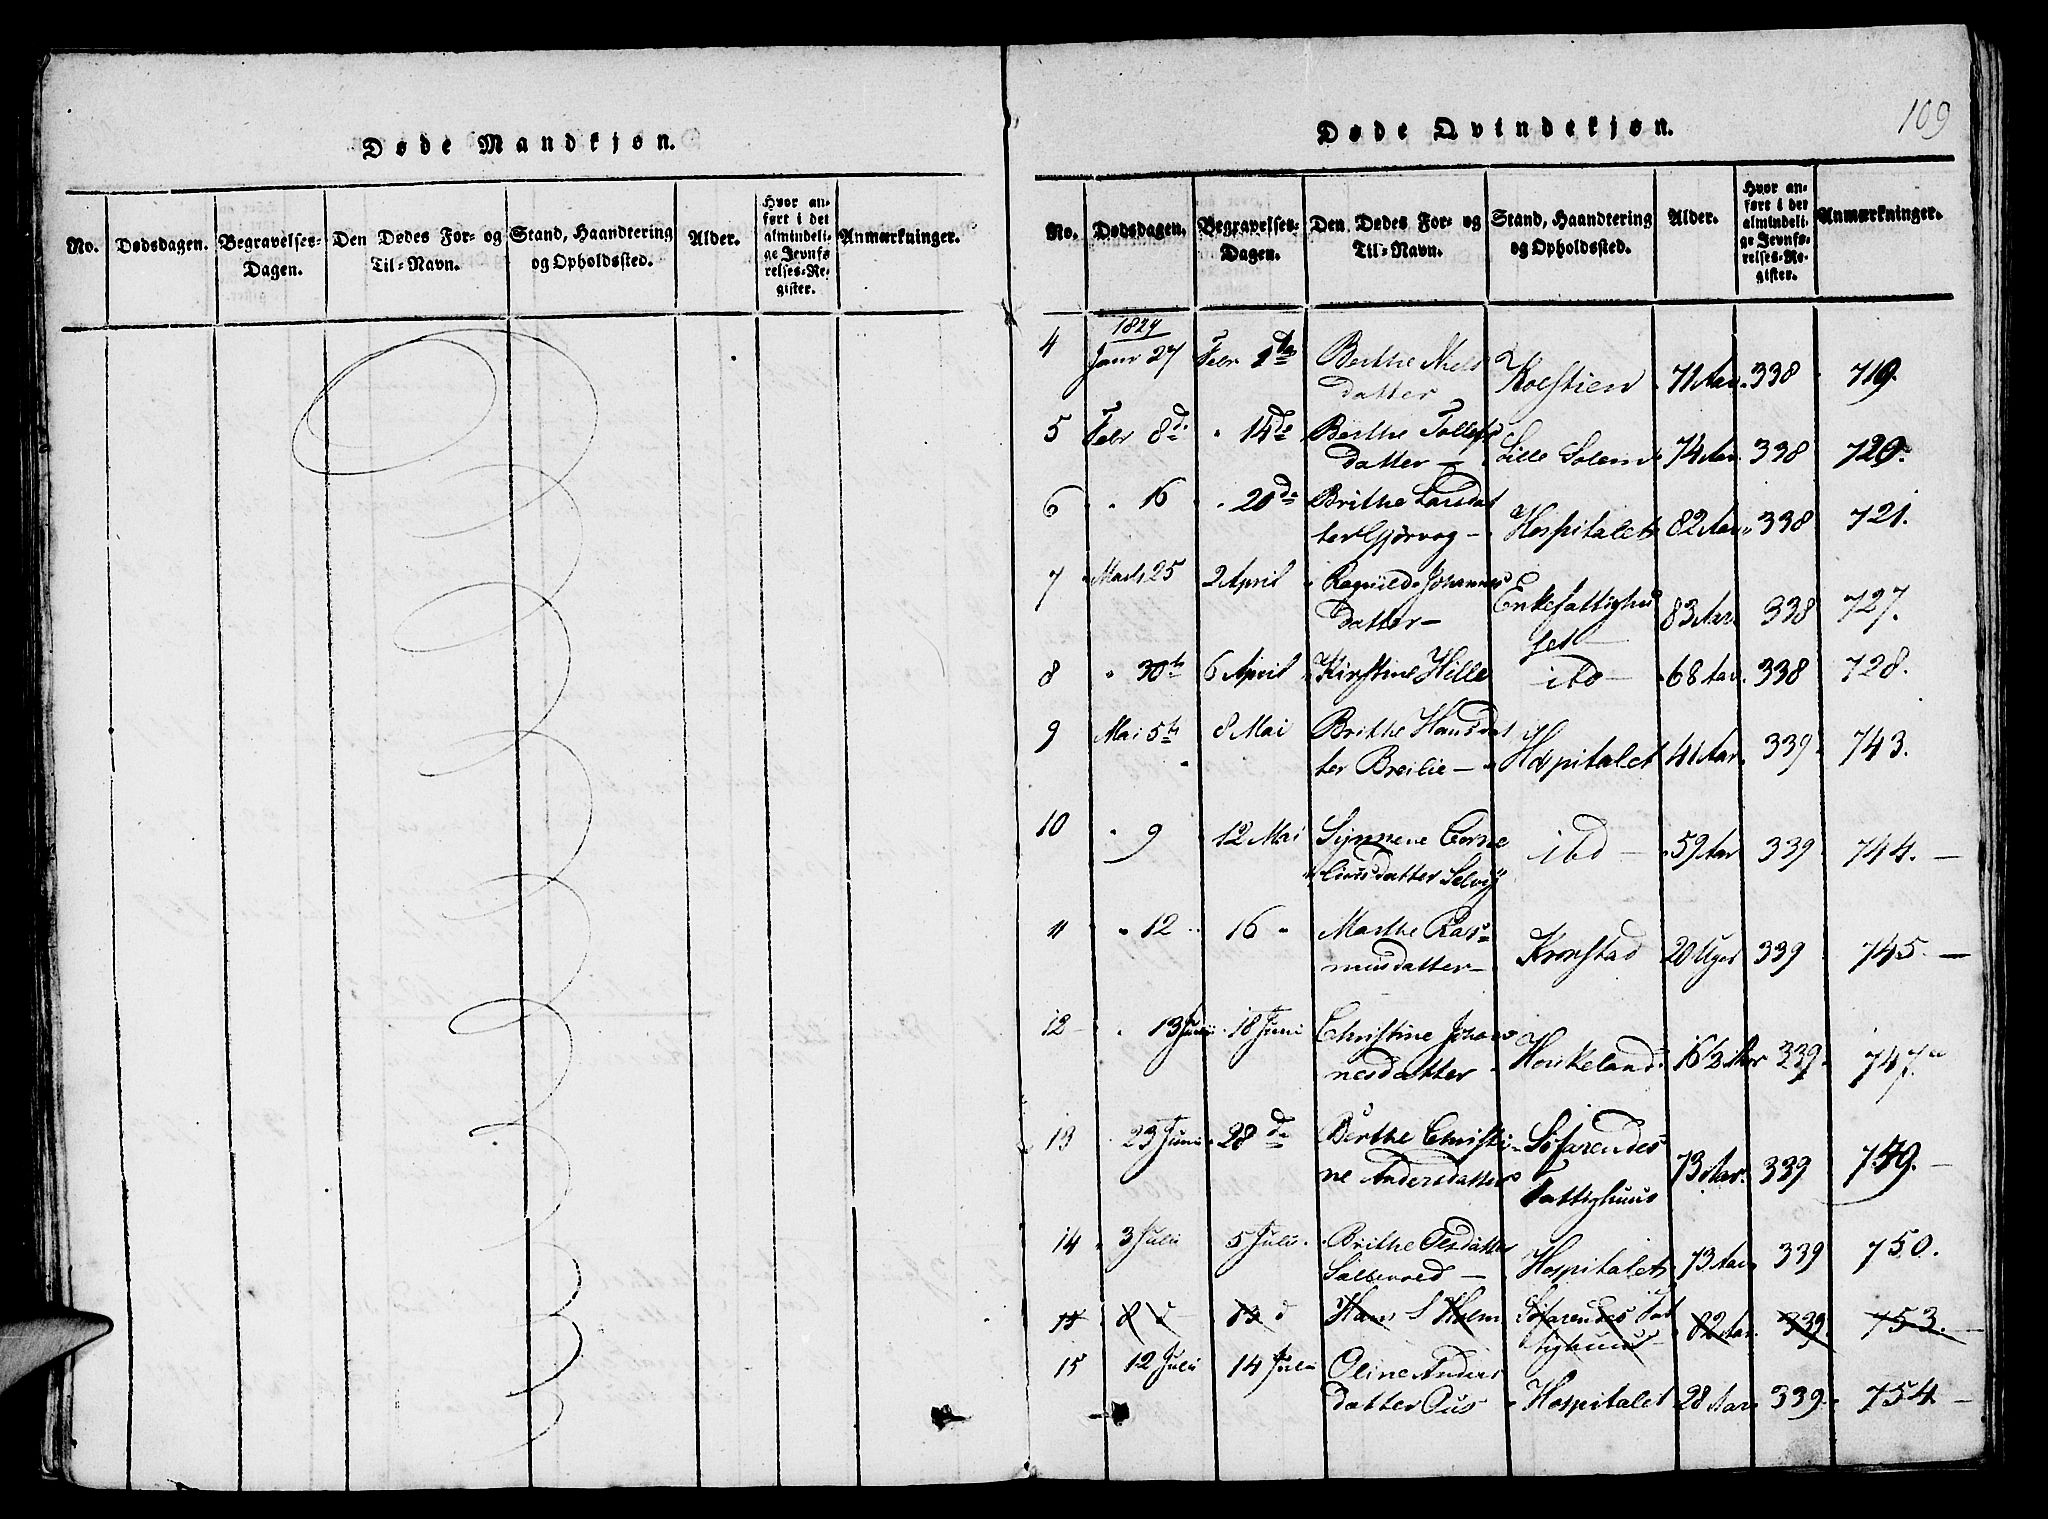 Døde Mandkjøn.
No.
Dødsdagen.
Begravelses-
Dagen.
Den Dødes For- og
Til-Navn.
Stand, Haandtering
og Opholdssted.
Alder.
Hvor an-
ført i det
almindeli-
ge Jevnfø-
relses-Re-
gister.
Anmærkninger.
109
Døde Qvindekjøn.
No.
Dødsdagen.
Begravelses-
Dagen.
Den Dødes For- og
Til-Navn.
Stand, Haandtering
og Opholdssted.
Alder.
Hvor an-
ført i det
almindeli-
ge Jevnfø-
relses-Re-
gister.
Anmærkninger.
1824
4 Janr 27 Febr 1de Berthe Niels
datter Kolstien 71 Aar 338 719.
5 Febr 8de " 14de Berthe Tollefs
datter — Lille Solem 74 Aar 338 720.
6 " 16 " 20de Brithe Larsdat
ter Gjørvog — Hospitalet 82 Aar 338 721.
7 Marts 25 2 April Ragnild Johannes
datter — Enkefattighu
set — 83 Aar 338 727.
8 " 30te 6 April Kirstine Hille — ibd — 68 Aar 338 728.
9 Mai 5te 8 Mai Brithe Hansdat
ter Breilie — Hospitalet 41 Aar 339 743.
10 " 9 12 Mai Synneve Corne
liusdatter Selvig ibd — 59 Aar 339 744. —
11 " 12 16 " Marthe Ras=
musdatter — Kronstad 20 Uger 339 745. —
12 " 13 Juni 18 Juni Christine Johan
nesdatter Houkeland 16½ Aar 339 747.a
13 23 Juni 28de Berthe Christi-
ne Andersdatter Søfarendes
Fattighuus 73 Aar 339 749. —
14 3 Juli 5 Juli Brithe Olsdatter
Hospitalet 73 Aar 339 750.
15 8 d 13 d Hans S Holm Søfarendes Fat
tighuus 82 Aar 339 753. —
15 12 Juli 14 Juli Oline Anders
datter Ous Hospitalet 28 Aar 339 754 —